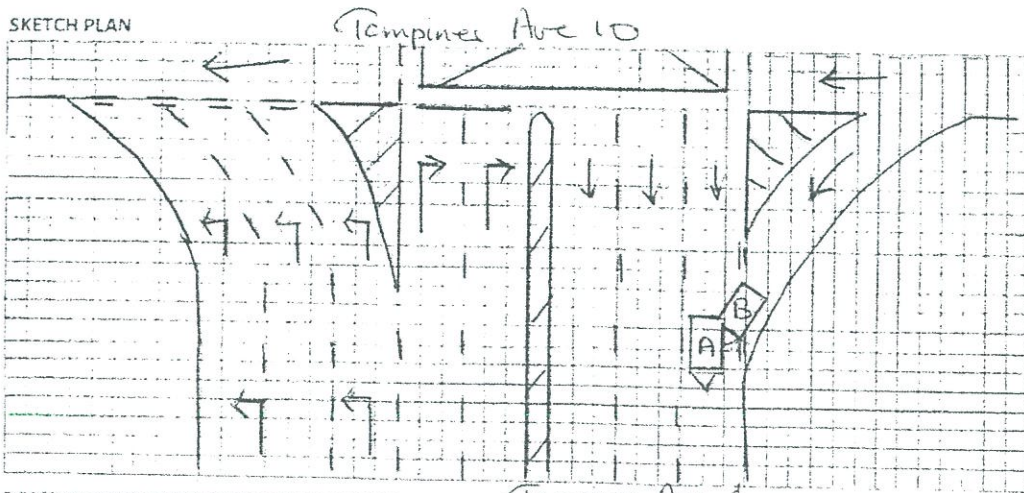 SKETCH PLAN
Tampines Ave 10
B
A